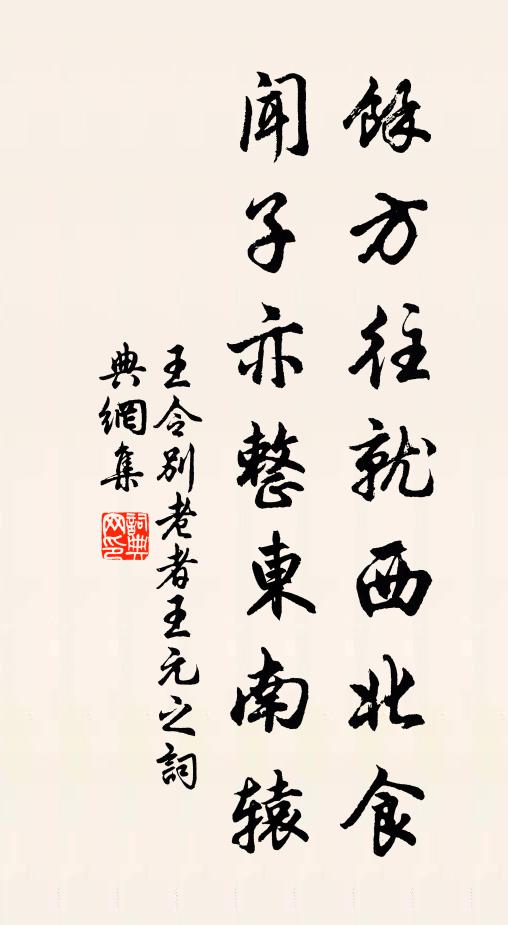 餘方往就西北食
闻子亦整東南辕
王令别老者王元之詞
典網集
詞典网印